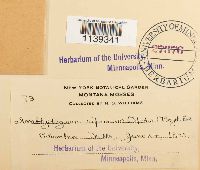 1139341
UNIVERSITY OF MINN
HERBARIUM
Herbarium of the University,
Minneapolis, Minn.
NEW YORK BOTANICAL GARDEN
MONTANA MOSSES
COLLECTED BY R. S. WILLIAMS
73
Amblystegium riparium
Columbia Falls,
Herbarium of the University,
Minneapolis, Minn.